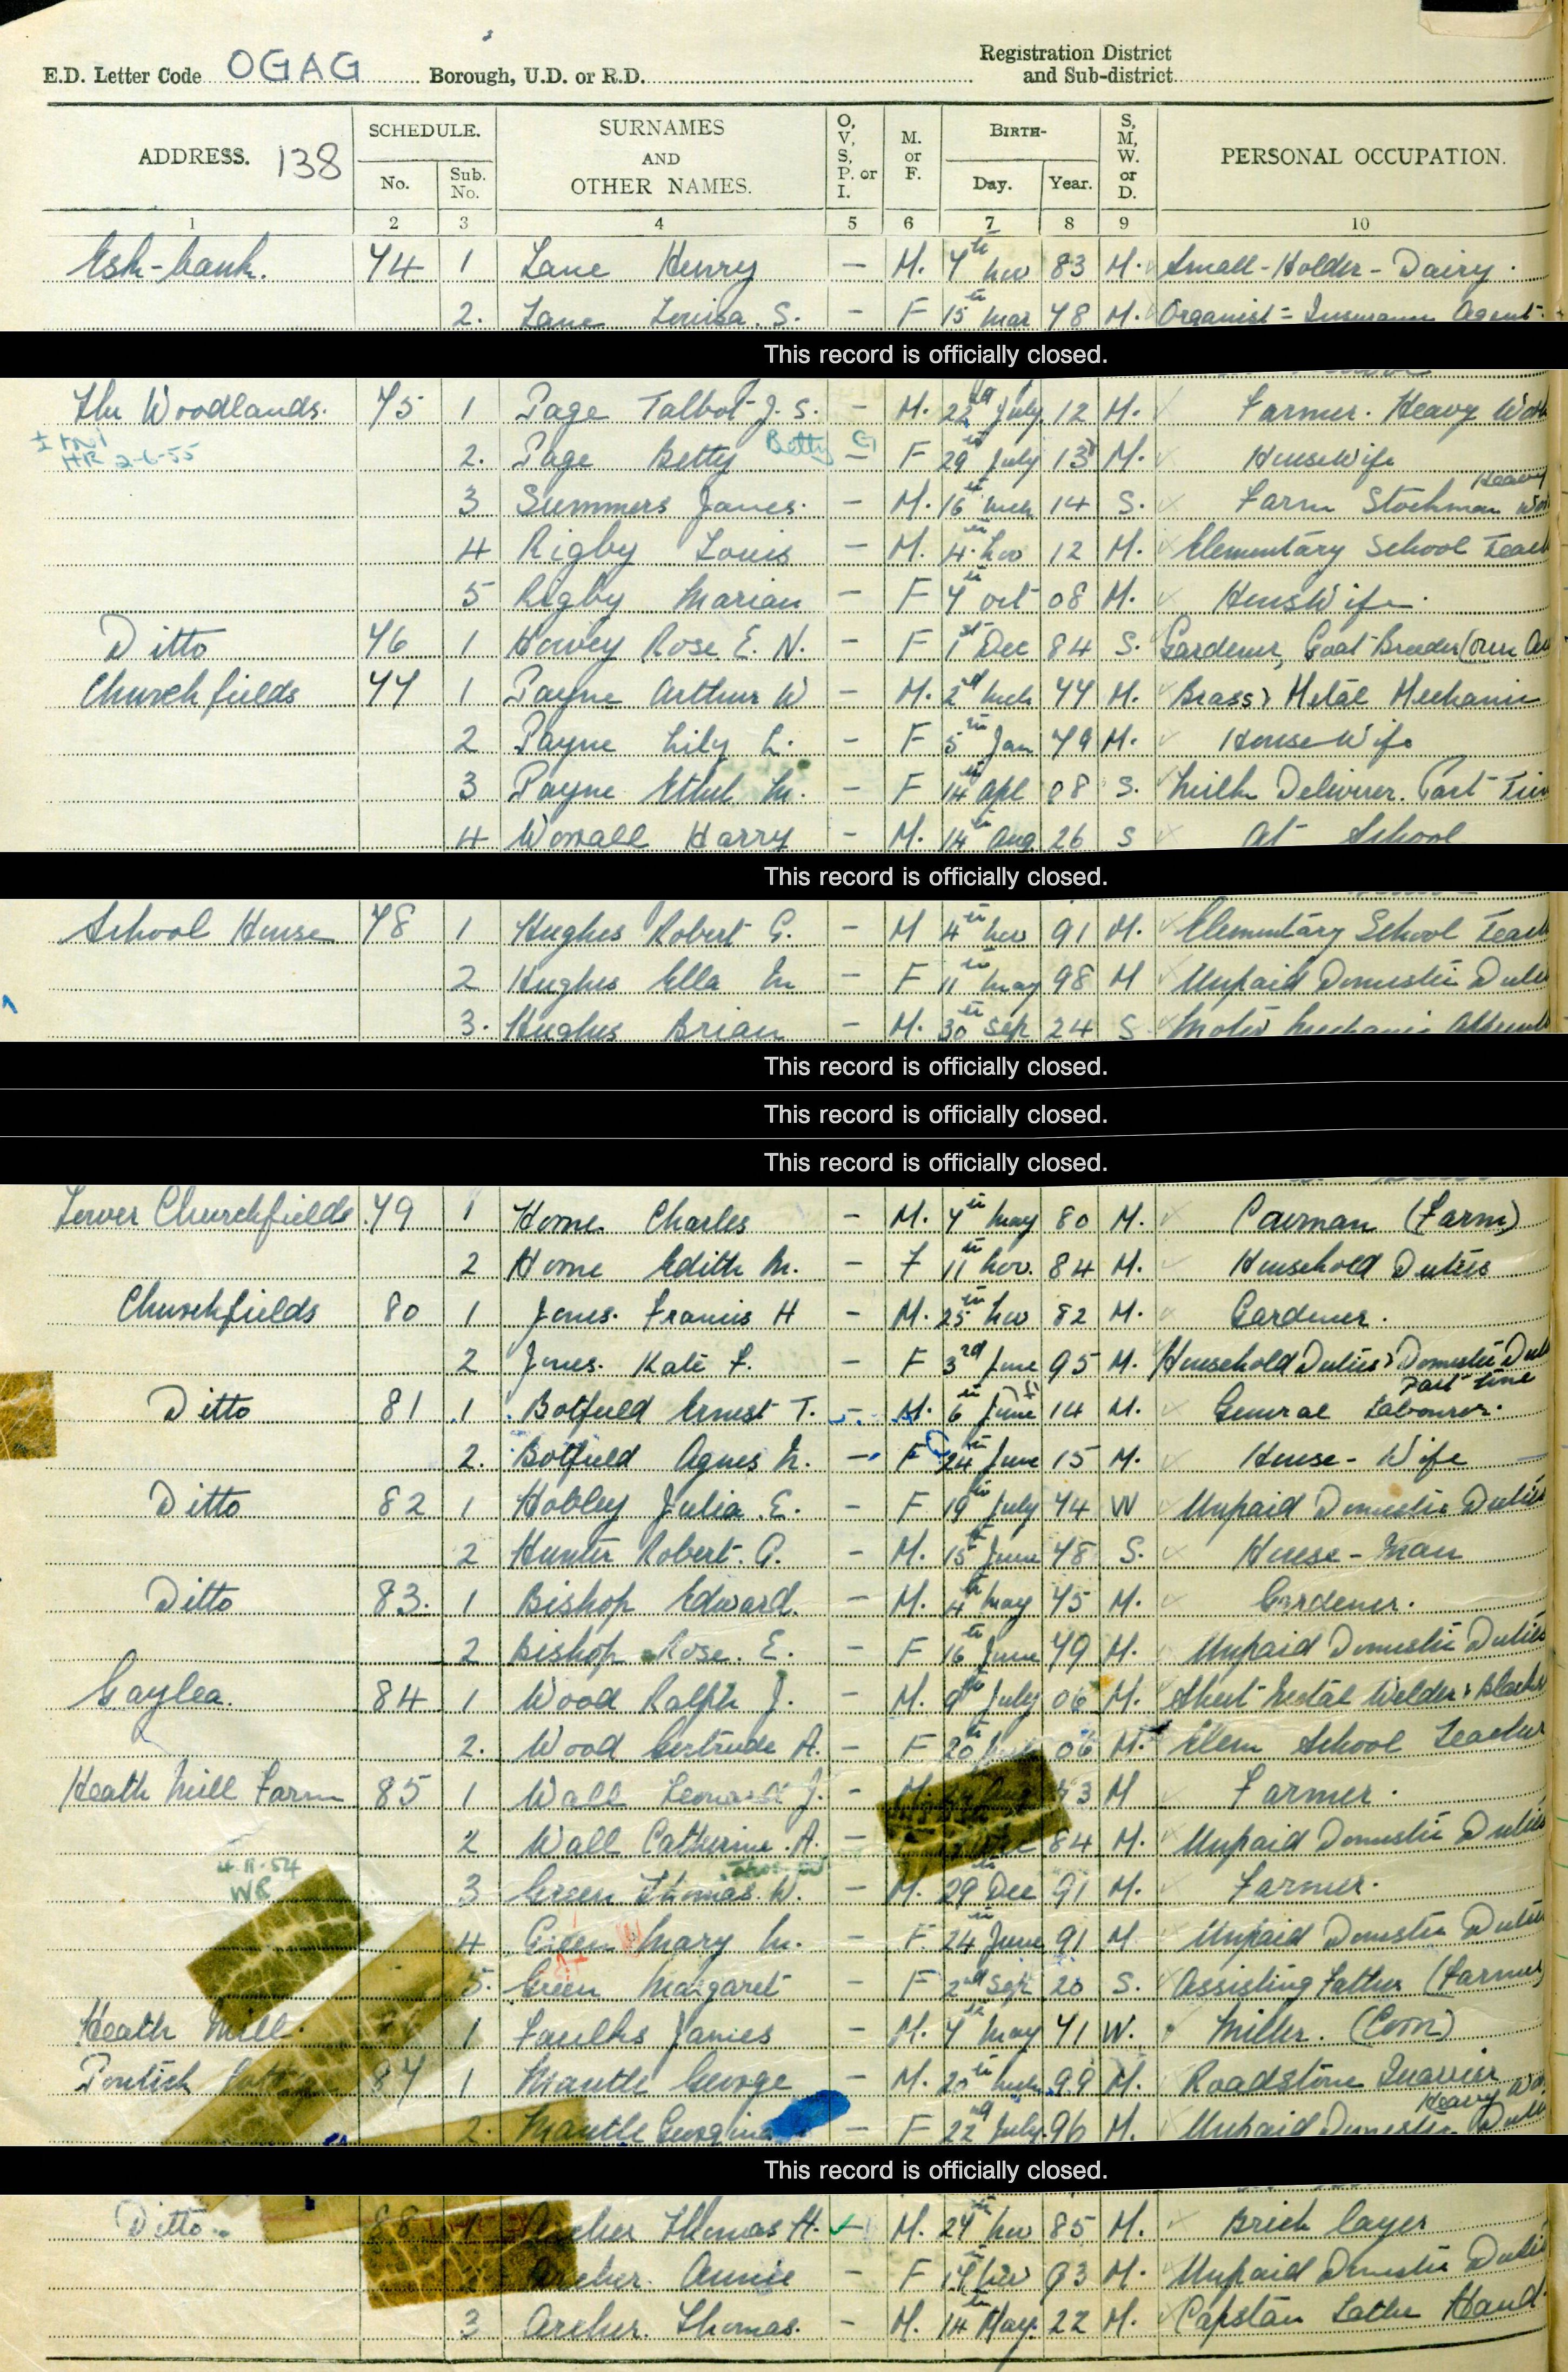 E.D. Letter Code OGAG Borough, U.D. or R.D. Registration District and Sub-district
ADDRESS. 138 SCHEDULE. No. Sub. No. SURNAMES AND OTHER NAMES. O, V, S, P. or I. M. or F. BIRTH- Day. Year. S, M, W. or D. PERSONAL OCCUPATION.
1 2 3 4 5 6 7 8 9 10
Esk-bank. 74 1 Lane Henry — M. 7th Nov 83 M. Small-Holder - Dairy.
2. Lane Louisa. S. — F 15th Mar 78 M. Organist = Insurance Agent.
This record is officially closed.
The Woodlands. 75 1 Page Talbot J. S. — M. 22nd July 12 M. Farmer. Heavy Work
HR 2-6-55 2. Page Betty Betty G — F 29th July 13 M. Housewife
3 Summers James. — M. 16th Mch 14 S. Farm Stockman Heavy
4 Rigby Louis — M. 4th Nov 12 M. Elementary School Teach
5 Rigby Marian — F 7th Oct 08 M. HousWife.
Ditto 76 1 Howey Rose. E. N. — F 1st Dec 84 S. Gardener, Goat Breeder (Own
Churchfields 77 1 Payne Arthur W — M. 2nd Mch 77 M. Brass & Metal Mechanic
2 Payne Lily L. — F 5th Jan 79 M. House Wife
3 Payne Ethel M. — F 14th Apl 08 S. Milk Deliverer. Part Tim
4 Worrall Harry — M. 14th Aug. 26 S At School
This record is officially closed.
School House 78 1 Hughes Robert G. — M 4th Nov 91 M. Elementary School Teach
2 Hughes Ella M — F 11th May 98 M Unpaid Domestic Duties
3. Hughes Brian — M. 30th Sep 24 S Motor Mechanic
This record is officially closed.
This record is officially closed.
This record is officially closed.
Lower Churchfields 79 1 Horne Charles — M. 7th May 80 M. Cowman (Farm)
2 Horne Edith M. — F 11th Nov. 84 M. Household Duties
Churchfields 80 1 Jones. Francis H — M. 25th Nov 82 M. Gardener.
2 Jones. Kate F. — F 3rd June 95 M. Household Duties & Domestic Dut
Part time
Ditto 81 1 Botfield Ernest T. — M. 6th June 14 M. General Labourer.
2. Botfield Agnes M. — F 24th June 15 M. House-Wife
Ditto 82 1 Hobley Julia. E. — F 19th July 74 W Unpaid Domestic Duties
2 Hunter Robert. A. — M. 15th June 78 S. House-Man
Ditto 83. 1 Bishop Edward. — M. 4th May 75 M. Gardener.
2 Bishop Rose. E. — F 16th June 79 M. Unpaid Domestic Duties
Gaylea. 84 1 Wood Ralph J. — M. 9th July 06 M. Sheet Metal Welder & Blacks
2. Wood Gertrude A. — F 20th 06 M. Elem School Teacher
Heath Mill Farm 85 1 Wall Leonard J. — M. M Farmer.
2 Wall Catherine. A. — 84 M. Unpaid Domestic Duties
4-11-54 WR 3 Green Thomas. W. — M. 29th Dec 91 M. Farmer.
4 Green Mary M. — F. 24th June 91 M. Unpaid Domestic Duties
5. Green Margaret — F 2nd Sept 20 S. Assisting Father (Farmer)
Heath Mill. 1 Faulks James — M. 7th May 71 W. Miller. (Corn)
87 1 Mantle George — M. 20th Mch 99 M. Roadstone Quarrier
Heavy
2. Mantle Georgina — F 22nd July 96 M. Unpaid Domestic Duties
This record is officially closed.
Ditto 88 1 Archer Thomas H. — M. 27th Nov 85 M. Brick layer
Archer. Annie — F 17th Nov 93 M. Unpaid Domestic Duties
3 Archer. Thomas. — M. 14th May. 22 M. Capstan Lathe Hand.